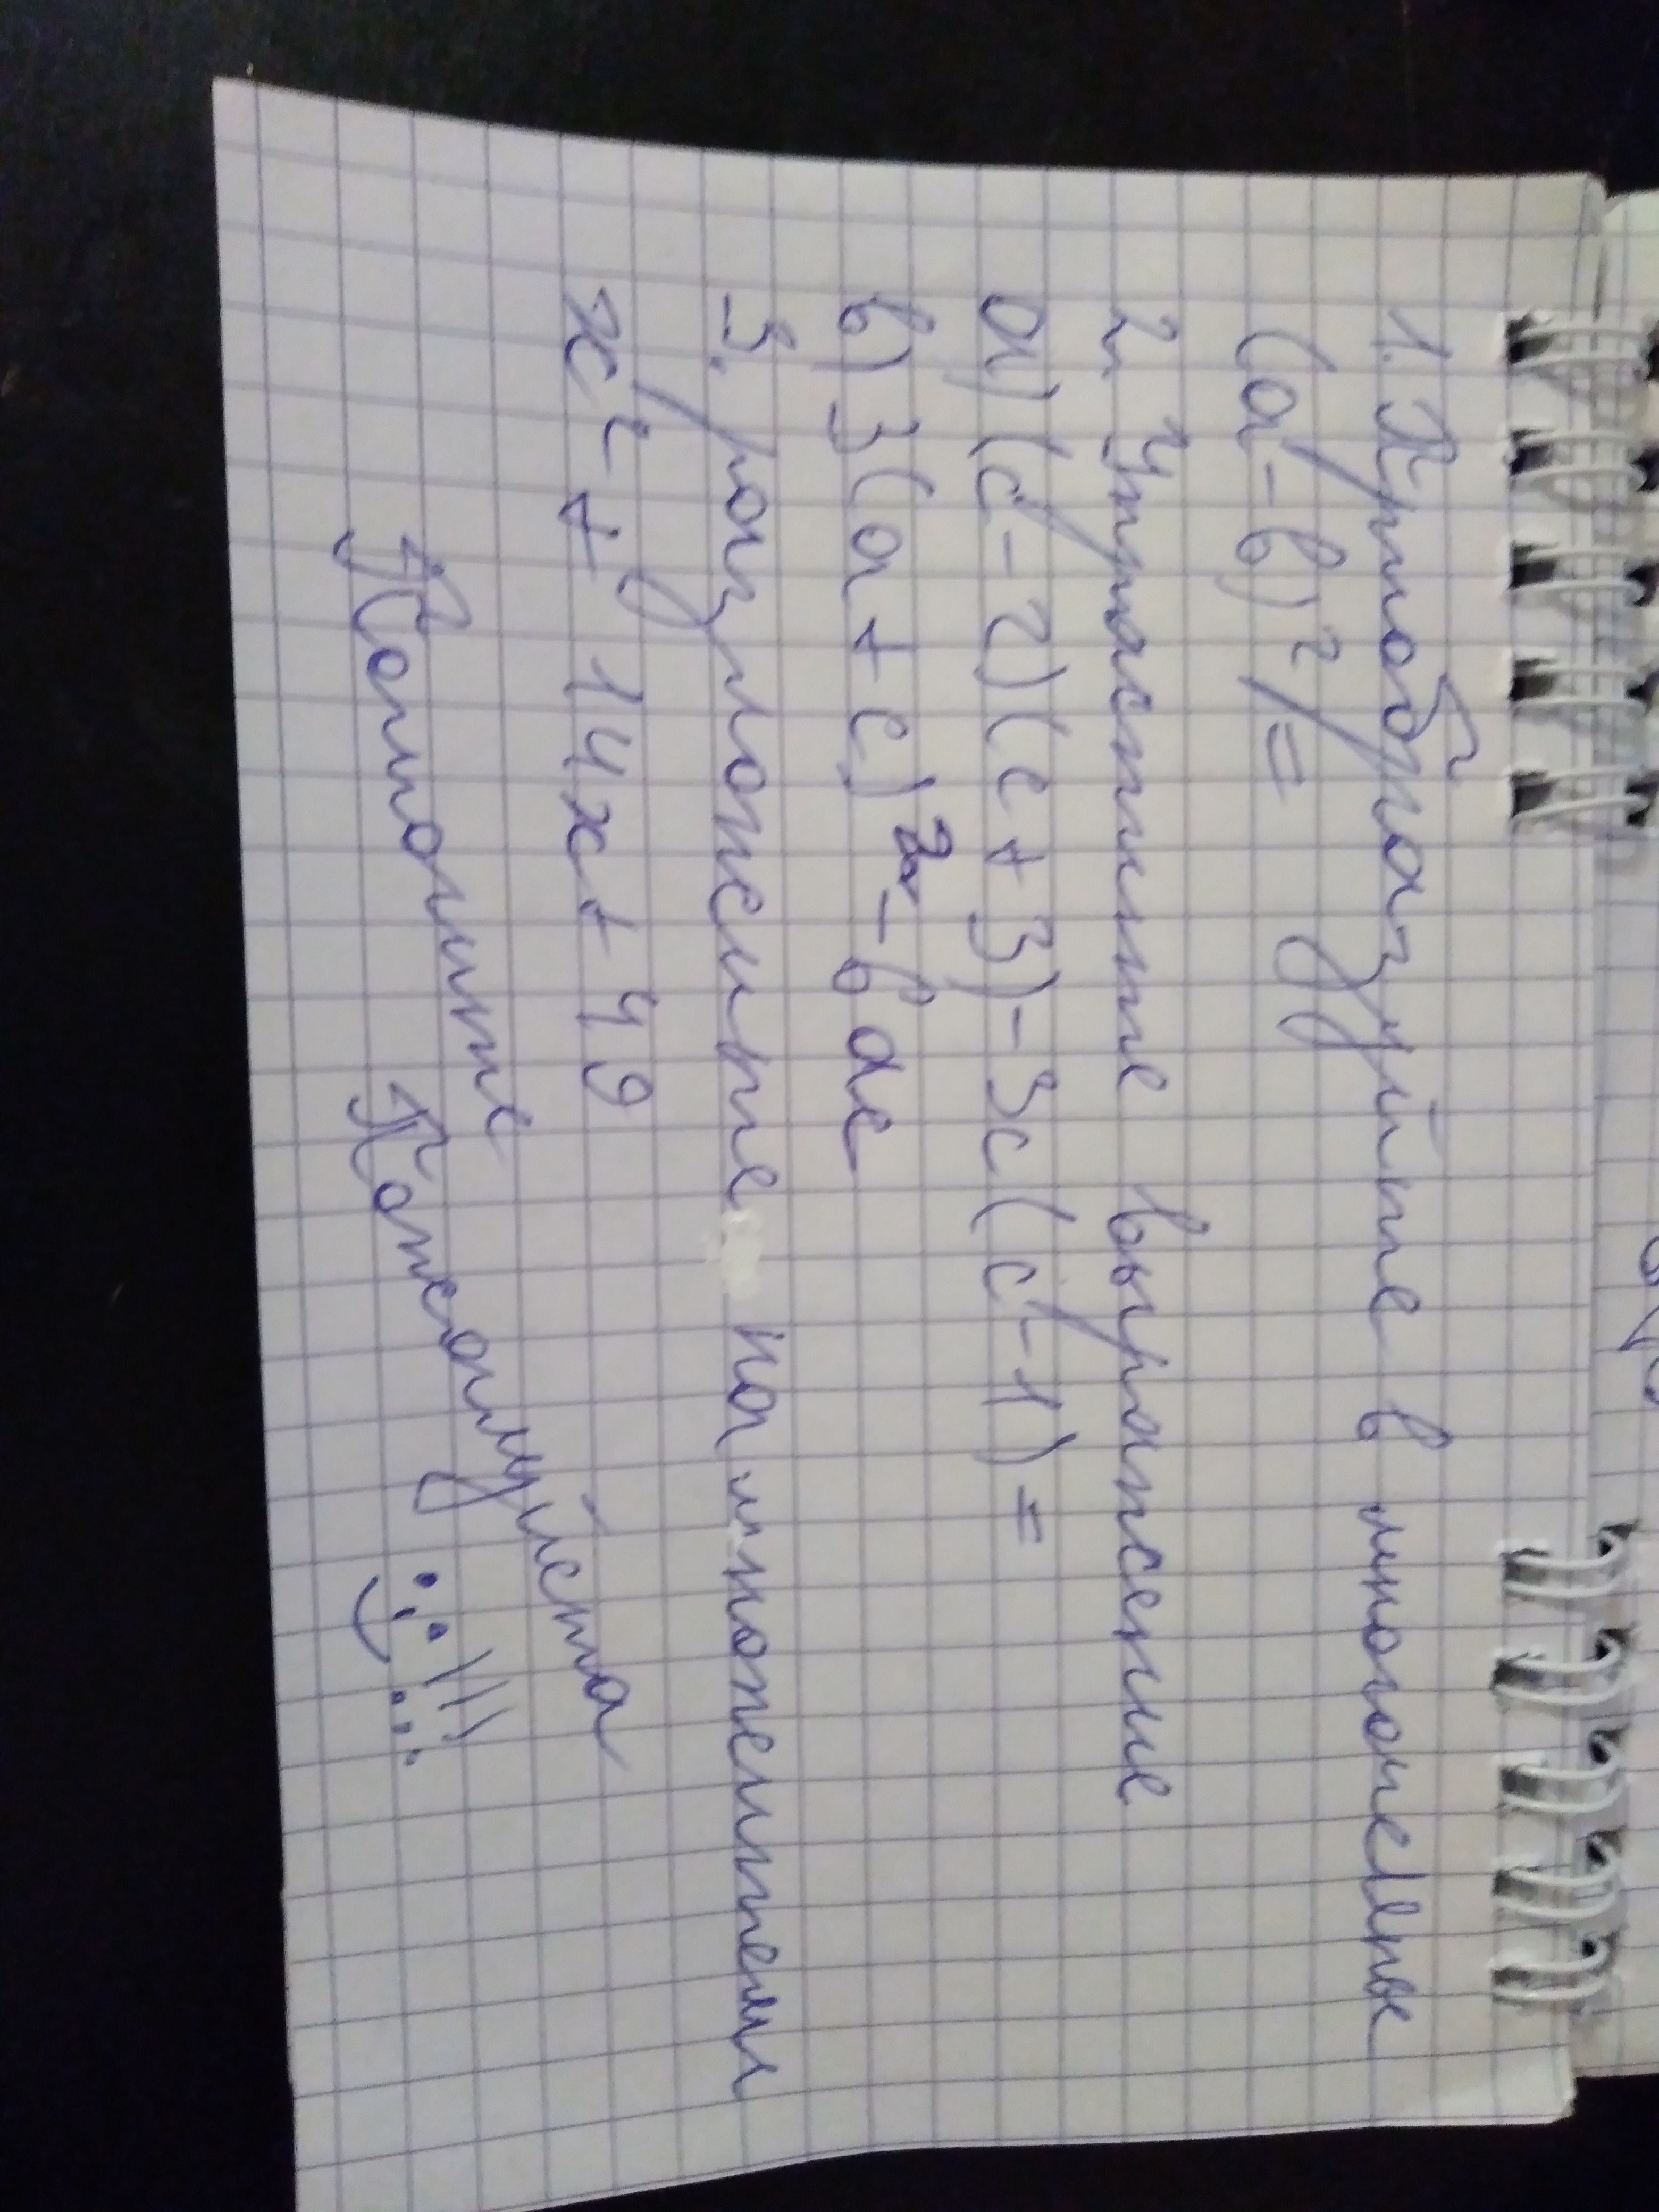 1. Преобразуйте в многочелны
(a-b)²=
2. Упростите выражение
a) (c-2)(c+3)-3c(c-1)=
b) 3(a+c)²-6ac
3. разложите на множители
x²+14x+49
Помогите Пожалуйста